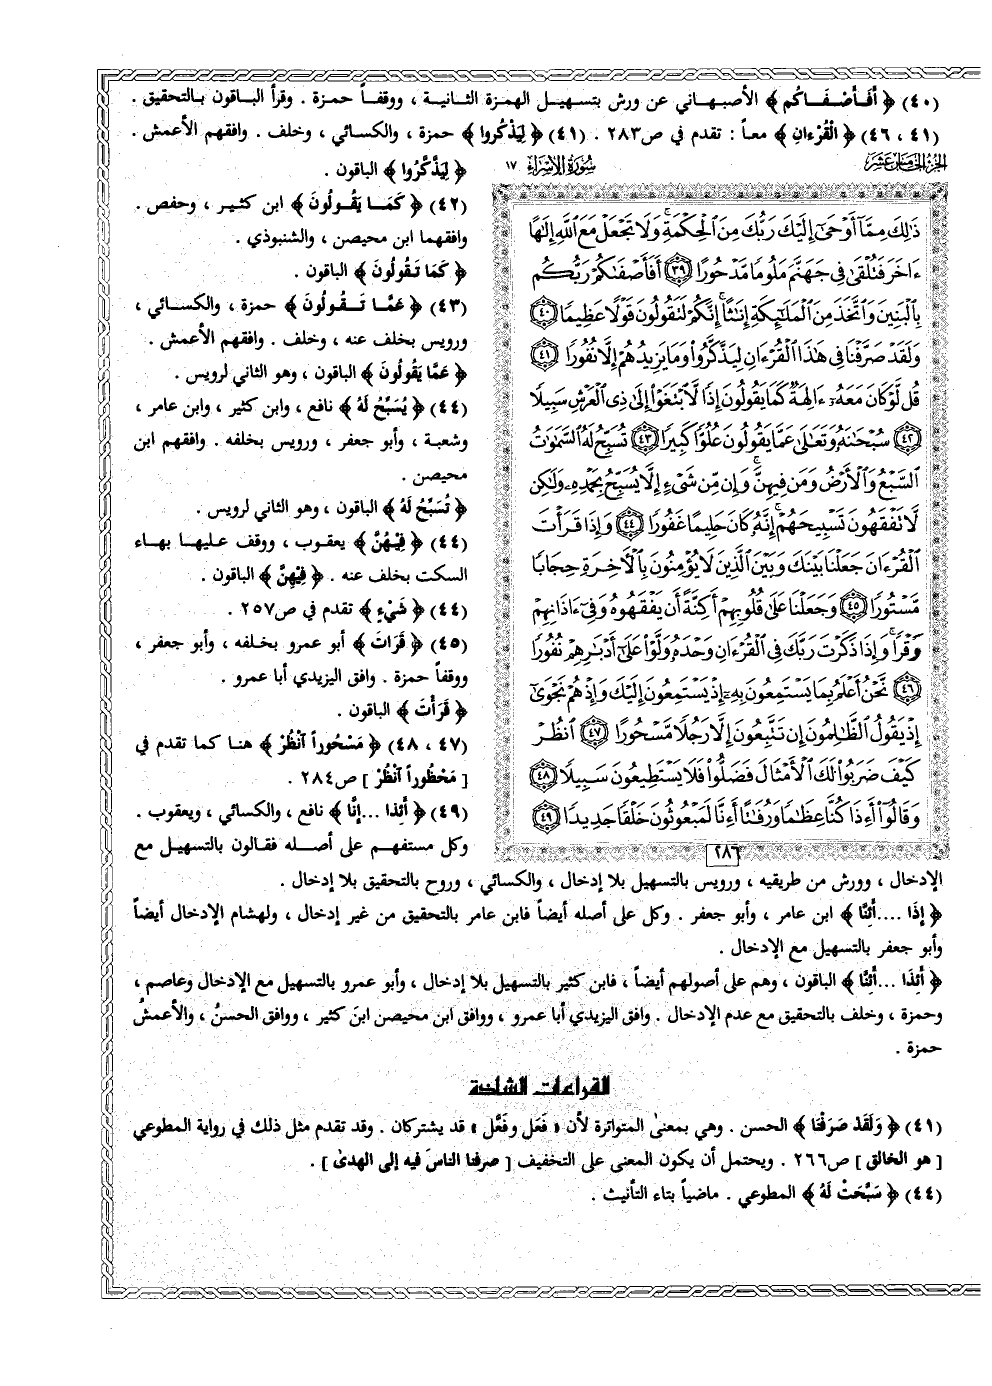 (٤٠) ﴿ أَفَأَصْفَاكُم ﴾ الأصبهاني عن ورش بتسهيل الهمزة الثانية ، ووقفاً حمزة . وقرأ الباقون بالتحقيق .
(٤١ ، ٤٦) ﴿ الْقُرْءَانِ ﴾ معاً : تقدم في ص٢٨٣ . (٤١) ﴿ لِيَذْكُروا ﴾ حمزة ، والكسائي ، وخلف . وافقهم الأعمش .
﴿ لِيَذَّكَّرُوا ﴾ الباقون .
(٤٢) ﴿ كَمَـا يَقُـولُونَ ﴾ ابن كثـير ، وحفص .
وافقهما ابن محيصن ، والشنبوذي .
﴿ كَمَا تَقُولُونَ ﴾ الباقون .
(٤٣) ﴿ عَمَّا تَقُـولُونَ ﴾ حمزة ، والكسائي ،
ورويس بخلف عنه ، وخلف . وافقهم الأعمش .
﴿ عَمَّا يَقُولُونَ ﴾ الباقون ، وهو الثاني لرويس .
(٤٤) ﴿ يُسَبِّحُ لَهُ ﴾ نافع ، وابن كثير ، وابن عامر ،
وشعبة ، وأبو جعفر ، ورويس بخلفه . وافقهم ابن
محيصن .
﴿ تُسَبِّحُ لَهُ ﴾ الباقون ، وهو الثاني لرويس .
(٤٤) ﴿ فِيْهُنَّ ﴾ يعقـوب ، ووقف عليهـا بهـاء
السكت بخلف عنه . ﴿ فِيْهِنَّ ﴾ الباقون .
(٤٤) ﴿ شَيْءٍ ﴾ تقدم في ص٢٥٧ .
(٤٥) ﴿ قَرَاتَ ﴾ أبو عمرو بخلفه ، وأبو جعفر ،
ووقفاً حمزة . وافق اليزيدي أبا عمرو .
﴿ قَرَأْتَ ﴾ الباقون .
(٤٧ ، ٤٨) ﴿ مَسْحُوراً اُنْظُرْ ﴾ هنـا كما تقـدم في
[ مَحْظُوراً اُنْظُرْ ] ص٢٨٤ .
(٤٩) ﴿ أَئِذا ...إِنَّا ﴾ نافع ، والكسائي ، ويعقوب .
وكل مستفهـم على أصـله فقـالون بالتسهيـل مع
الجزء الخامس عشر
سُورَةُ الإِسْرَاءِ ١٧
ذَٰلِكَ مِمَّآ أَوْحَىٰٓ إِلَيْكَ رَبُّكَ مِنَ ٱلْحِكْمَةِ ۗ وَلَا تَجْعَلْ مَعَ ٱللَّهِ إِلَٰهًا
ءَاخَرَ فَتُلْقَىٰ فِى جَهَنَّمَ مَلُومًا مَّدْحُورًا ٣٩ أَفَأَصْفَىٰكُمْ رَبُّكُم
بِٱلْبَنِينَ وَٱتَّخَذَ مِنَ ٱلْمَلَٰٓئِكَةِ إِنَٰثًا ۚ إِنَّكُمْ لَتَقُولُونَ قَوْلًا عَظِيمًا ٤٠
وَلَقَدْ صَرَّفْنَا فِى هَٰذَا ٱلْقُرْءَانِ لِيَذَّكَّرُوا۟ وَمَا يَزِيدُهُمْ إِلَّا نُفُورًا ٤١
قُل لَّوْ كَانَ مَعَهُۥٓ ءَالِهَةٌ كَمَا يَقُولُونَ إِذًا لَّٱبْتَغَوْا۟ إِلَىٰ ذِى ٱلْعَرْشِ سَبِيلًا
٤٢ سُبْحَٰنَهُۥ وَتَعَٰلَىٰ عَمَّا يَقُولُونَ عُلُوًّا كَبِيرًا ٤٣ تُسَبِّحُ لَهُ ٱلسَّمَٰوَٰتُ
ٱلسَّبْعُ وَٱلْأَرْضُ وَمَن فِيهِنَّ ۚ وَإِن مِّن شَىْءٍ إِلَّا يُسَبِّحُ بِحَمْدِهِۦ وَلَٰكِن
لَّا تَفْقَهُونَ تَسْبِيحَهُمْ ۗ إِنَّهُۥ كَانَ حَلِيمًا غَفُورًا ٤٤ وَإِذَا قَرَأْتَ
ٱلْقُرْءَانَ جَعَلْنَا بَيْنَكَ وَبَيْنَ ٱلَّذِينَ لَا يُؤْمِنُونَ بِٱلْءَاخِرَةِ حِجَابًا
مَّسْتُورًا ٤٥ وَجَعَلْنَا عَلَىٰ قُلُوبِهِمْ أَكِنَّةً أَن يَفْقَهُوهُ وَفِىٓ ءَاذَانِهِمْ
وَقْرًا ۚ وَإِذَا ذَكَرْتَ رَبَّكَ فِى ٱلْقُرْءَانِ وَحْدَهُۥ وَلَّوْا۟ عَلَىٰٓ أَدْبَٰرِهِمْ نُفُورًا
٤٦ نَّحْنُ أَعْلَمُ بِمَا يَسْتَمِعُونَ بِهِۦٓ إِذْ يَسْتَمِعُونَ إِلَيْكَ وَإِذْ هُمْ نَجْوَىٰٓ
إِذْ يَقُولُ ٱلظَّٰلِمُونَ إِن تَتَّبِعُونَ إِلَّا رَجُلًا مَّسْحُورًا ٤٧ ٱنظُرْ
كَيْفَ ضَرَبُوا۟ لَكَ ٱلْأَمْثَالَ فَضَلُّوا۟ فَلَا يَسْتَطِيعُونَ سَبِيلًا ٤٨
وَقَالُوٓا۟ أَءِذَا كُنَّا عِظَٰمًا وَرُفَٰتًا أَءِنَّا لَمَبْعُوثُونَ خَلْقًا جَدِيدًا ٤٩
٢٨٦
الإدخال ، وورش من طريقيه ، ورويس بالتسهيل بلا إدخال ، والكسائي ، وروح بالتحقيق بلا إدخال .
﴿ إِذَا ....أَئِنَّا ﴾ ابن عامر ، وأبو جعفر . وكل على أصله أيضاً فابن عامر بالتحقيق من غير إدخال ، ولهشام الإدخال أيضاً
وأبو جعفر بالتسهيل مع الإدخال .
﴿ أَئِذَا ...أَئِنَّا ﴾ الباقون ، وهم على أصولهم أيضاً ، فابن كثير بالتسهيل بلا إدخال ، وأبو عمرو بالتسهيل مع الإدخال وعاصم ،
وحمزة ، وخلف بالتحقيق مع عدم الإدخال . وافق اليزيدي أبا عمرو ، ووافق ابن محيصن ابنَ كثير ، ووافق الحسنُ ، والأعمشُ
حمزة .
القراءات الشاذة
(٤١) ﴿ وَلَقَدْ صَرَفْنَا ﴾ الحسن . وهي بمعنىٰ المتواترة لأن « فَعَل وفَعَّل » قد يشتركان . وقد تقدم مثل ذلك في رواية المطوعي
[ هو الخالق ] ص٢٦٦ . ويحتمل أن يكون المعنى على التخفيف [ صرفنا الناسَ فيه إلى الهدىٰ ] .
(٤٤) ﴿ سَبَّحَتْ لَهُ ﴾ المطوعي . ماضياً بتاء التأنيث .